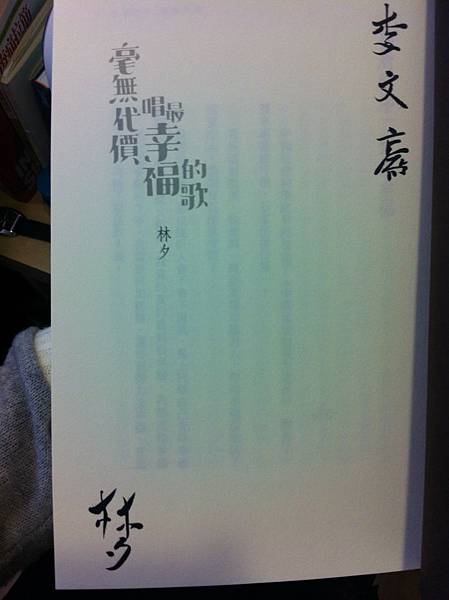 李文
毫無代價
唱最
幸福
的歌
林夕
林夕